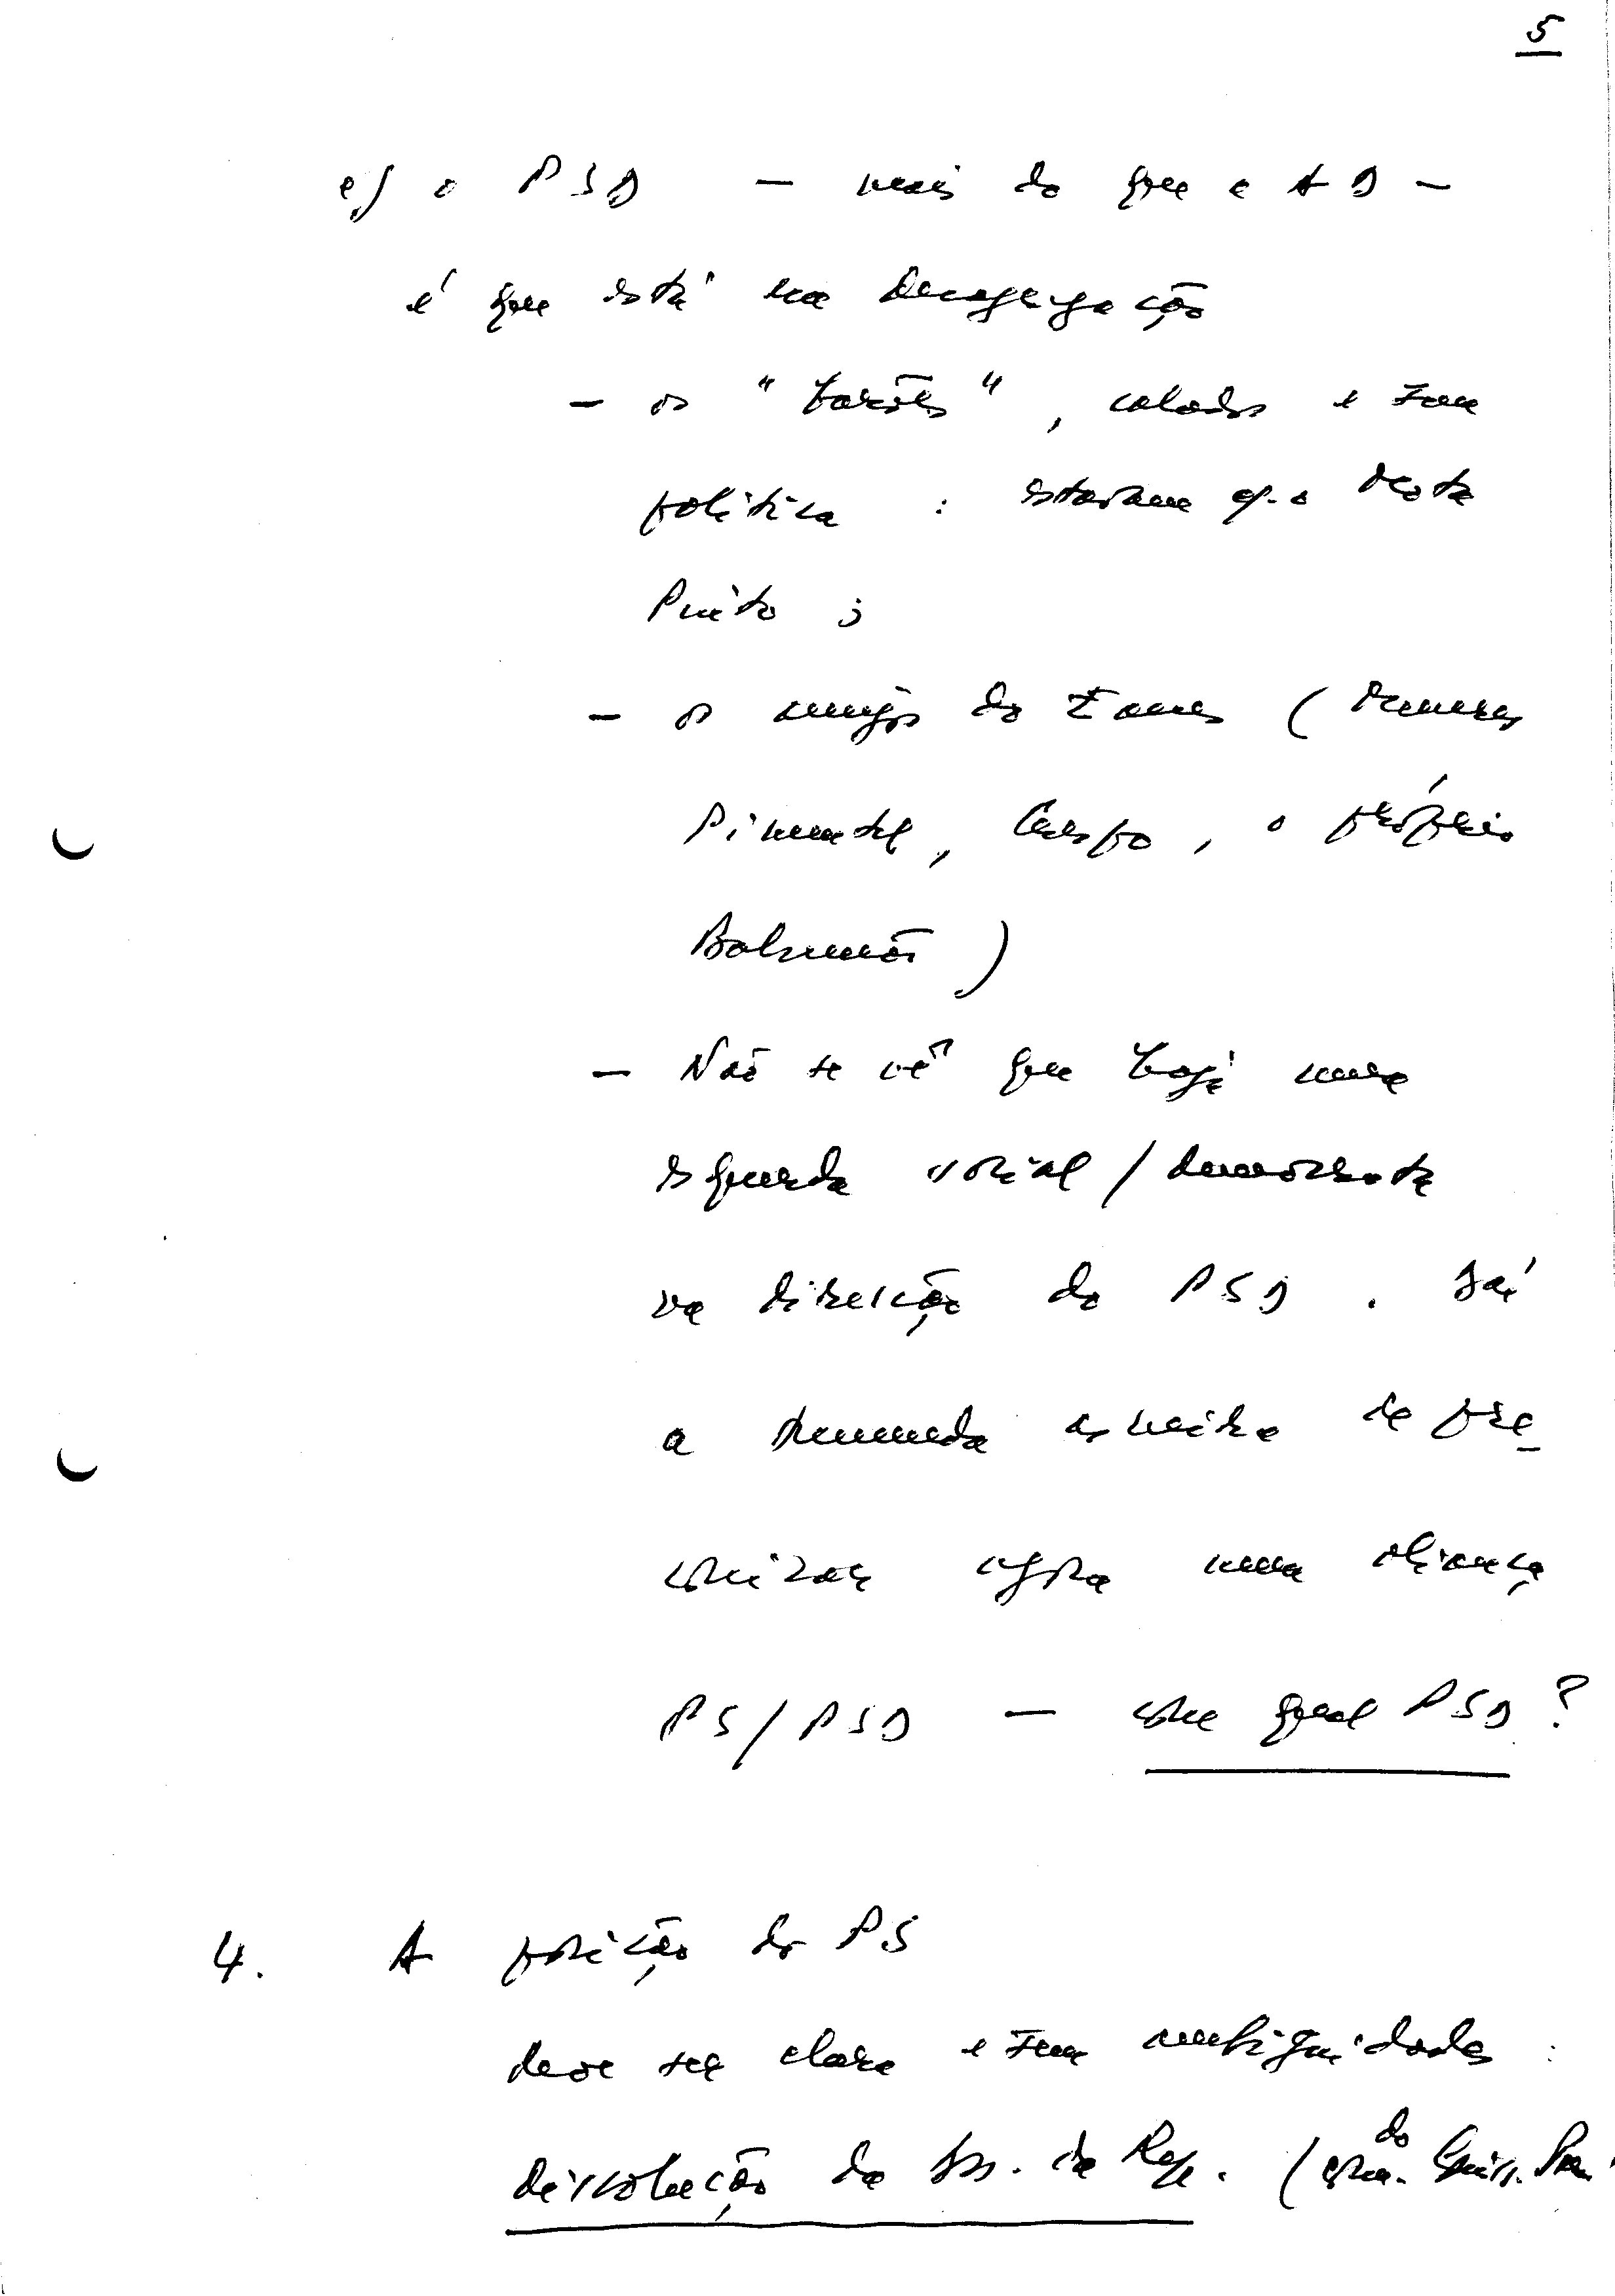 5
e) o PSD — mais do que a AD —
é que está em desagregação
— os "barões", calados e sem
política : estavam c/ o Mota
Pinto ;
— os amigos do Eanes (Meneres
Pimentel, Crespo, o próprio
Balsemão)
— Não se vê que haja uma
esquerda social/democrata
na direcção do PSD. Daí
a tremenda asneira de pre_
conizar agora uma aliança
PS/PSD — com qual PSD ?
4. A posição do PS
deve ser clara e sem ambiguidades :
dissolução da Ass. da Rep. (
do